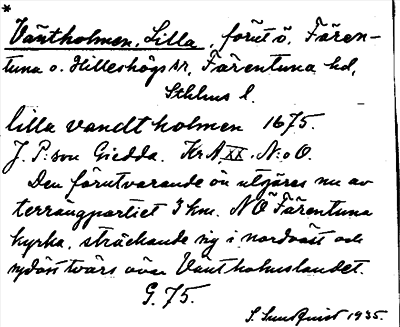 *
Väntholmen, Lilla, förut ö, Fären-
tuna o. Hilleshögs sr, Färentuna hd,
Sthlms l.
lilla vandt holmen 1675.
J. P:son Giedda. KrA XX. N:o O.
Den förutvarande ön utgöres nu av
terrängpartiet 3 km. NÖ Färentuna
kyrka, sträckande sig i nordväst och
sydöst tvärs över Vantholmslandet.
G. 75.
S. Sundquist 1935.